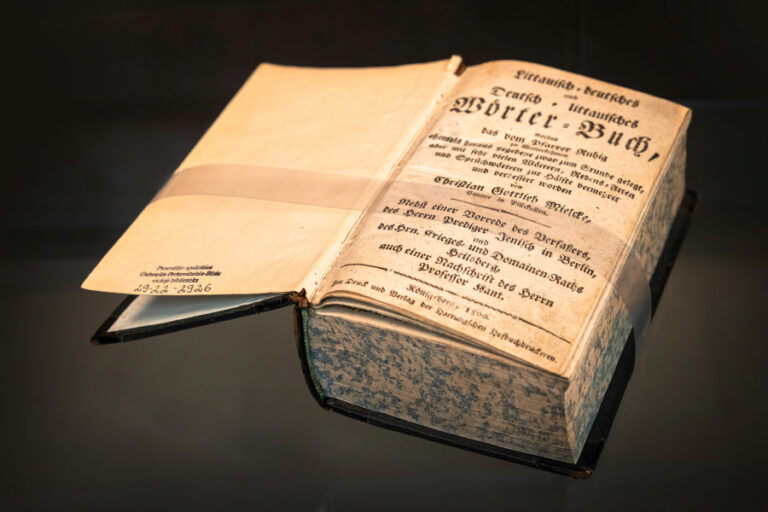 29-22 · 2926
Littauisch-deutsches
und
Deutsch-littauisches
Wörter-Buch,
worinn
das vom Pfarrer Ruhig
zu Walterkehmen
ehemals heraus gegebene zwar zum Grunde gelegt,
aber mit sehr vielen Wörtern, Redens-Arten
und Sprüchwörtern zur Hälfte vermehret
und verbessert worden
von
Christian Gottlieb Mielcke,
Cantor in Pillckallen.
Nebst einer Vorrede des Verfassers,
des Herrn Prediger Jenisch in Berlin,
und
des Hrn. Krieges- und Domainen-Raths
Heilsberg,
auch einer Nachschrift des Herrn
Professor Kant.
Königsberg, 1800.
Druck und Verlag der Hartungschen Hofbuchdruckerey.